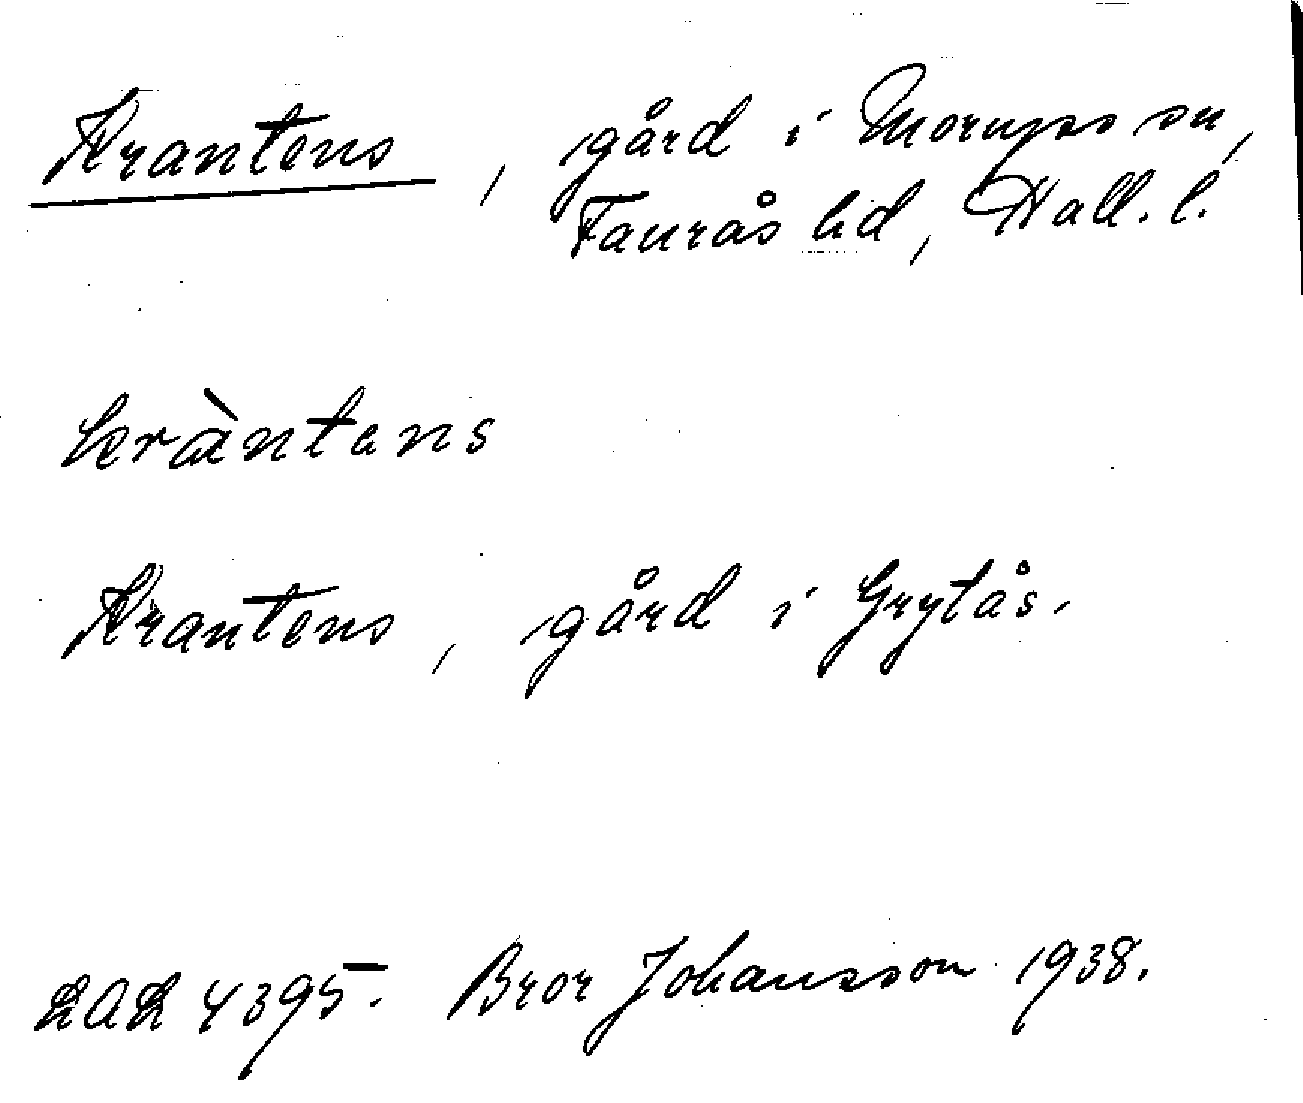 Krantens, gård i Morups sn,
Faurås hd, Hall. l.
kràntens
Krantens, gård i Grytås.
LAL 4395. Bror Johansson 1938.